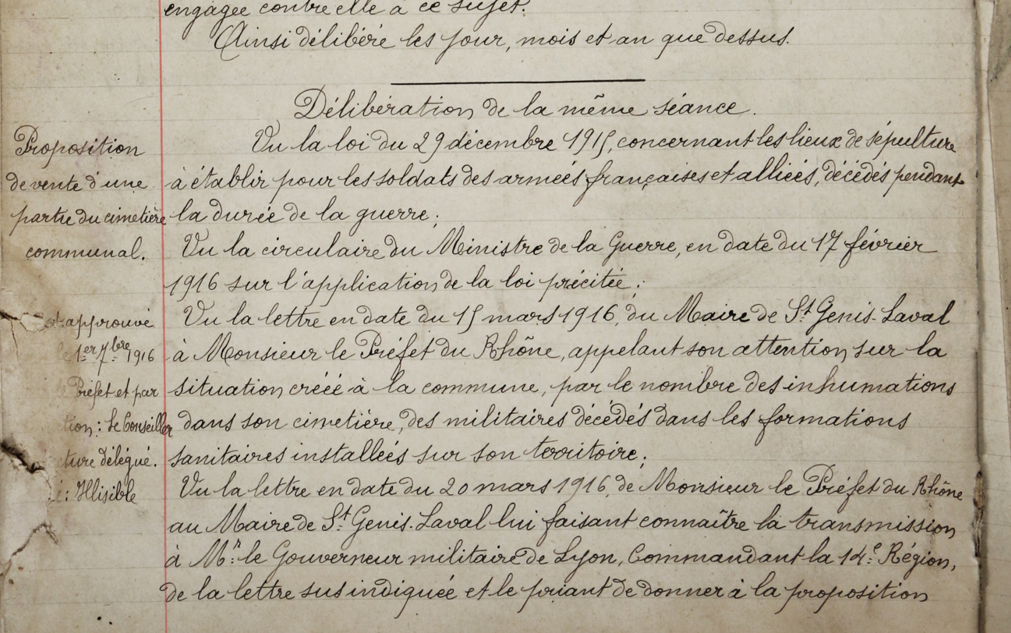 engagée contre elle à ce sujet.
Ainsi délibéré les jour, mois et an que dessus.
Délibération de la même séance.
Proposition
de vente d'une
partie du cimetière
communal.
Vu la loi du 29 décembre 1915, concernant les lieux de sépulture
à établir pour les soldats des armées françaises et alliées, décédés pendant
la durée de la guerre;
Vu la circulaire du Ministre de la Guerre, en date du 17 février
1916 sur l'application de la loi précitée;
approuvé
1er 7bre 1916
Préfet et par
tion: Le Conseiller
ture délégué.
: Illisible
Vu la lettre en date du 15 mars 1916, du Maire de St Genis-Laval
à Monsieur le Préfet du Rhône, appelant son attention sur la
situation créée à la commune, par le nombre des inhumations
dans son cimetière, des militaires décédés dans les formations
sanitaires installées sur son territoire;
Vu la lettre en date du 20 mars 1916, de Monsieur le Préfet du Rhône
au Maire de St Genis-Laval lui faisant connaître la transmission
à Mr le Gouverneur militaire de Lyon, Commandant la 14e Région,
de la lettre sus indiquée et le priant de donner à la proposition